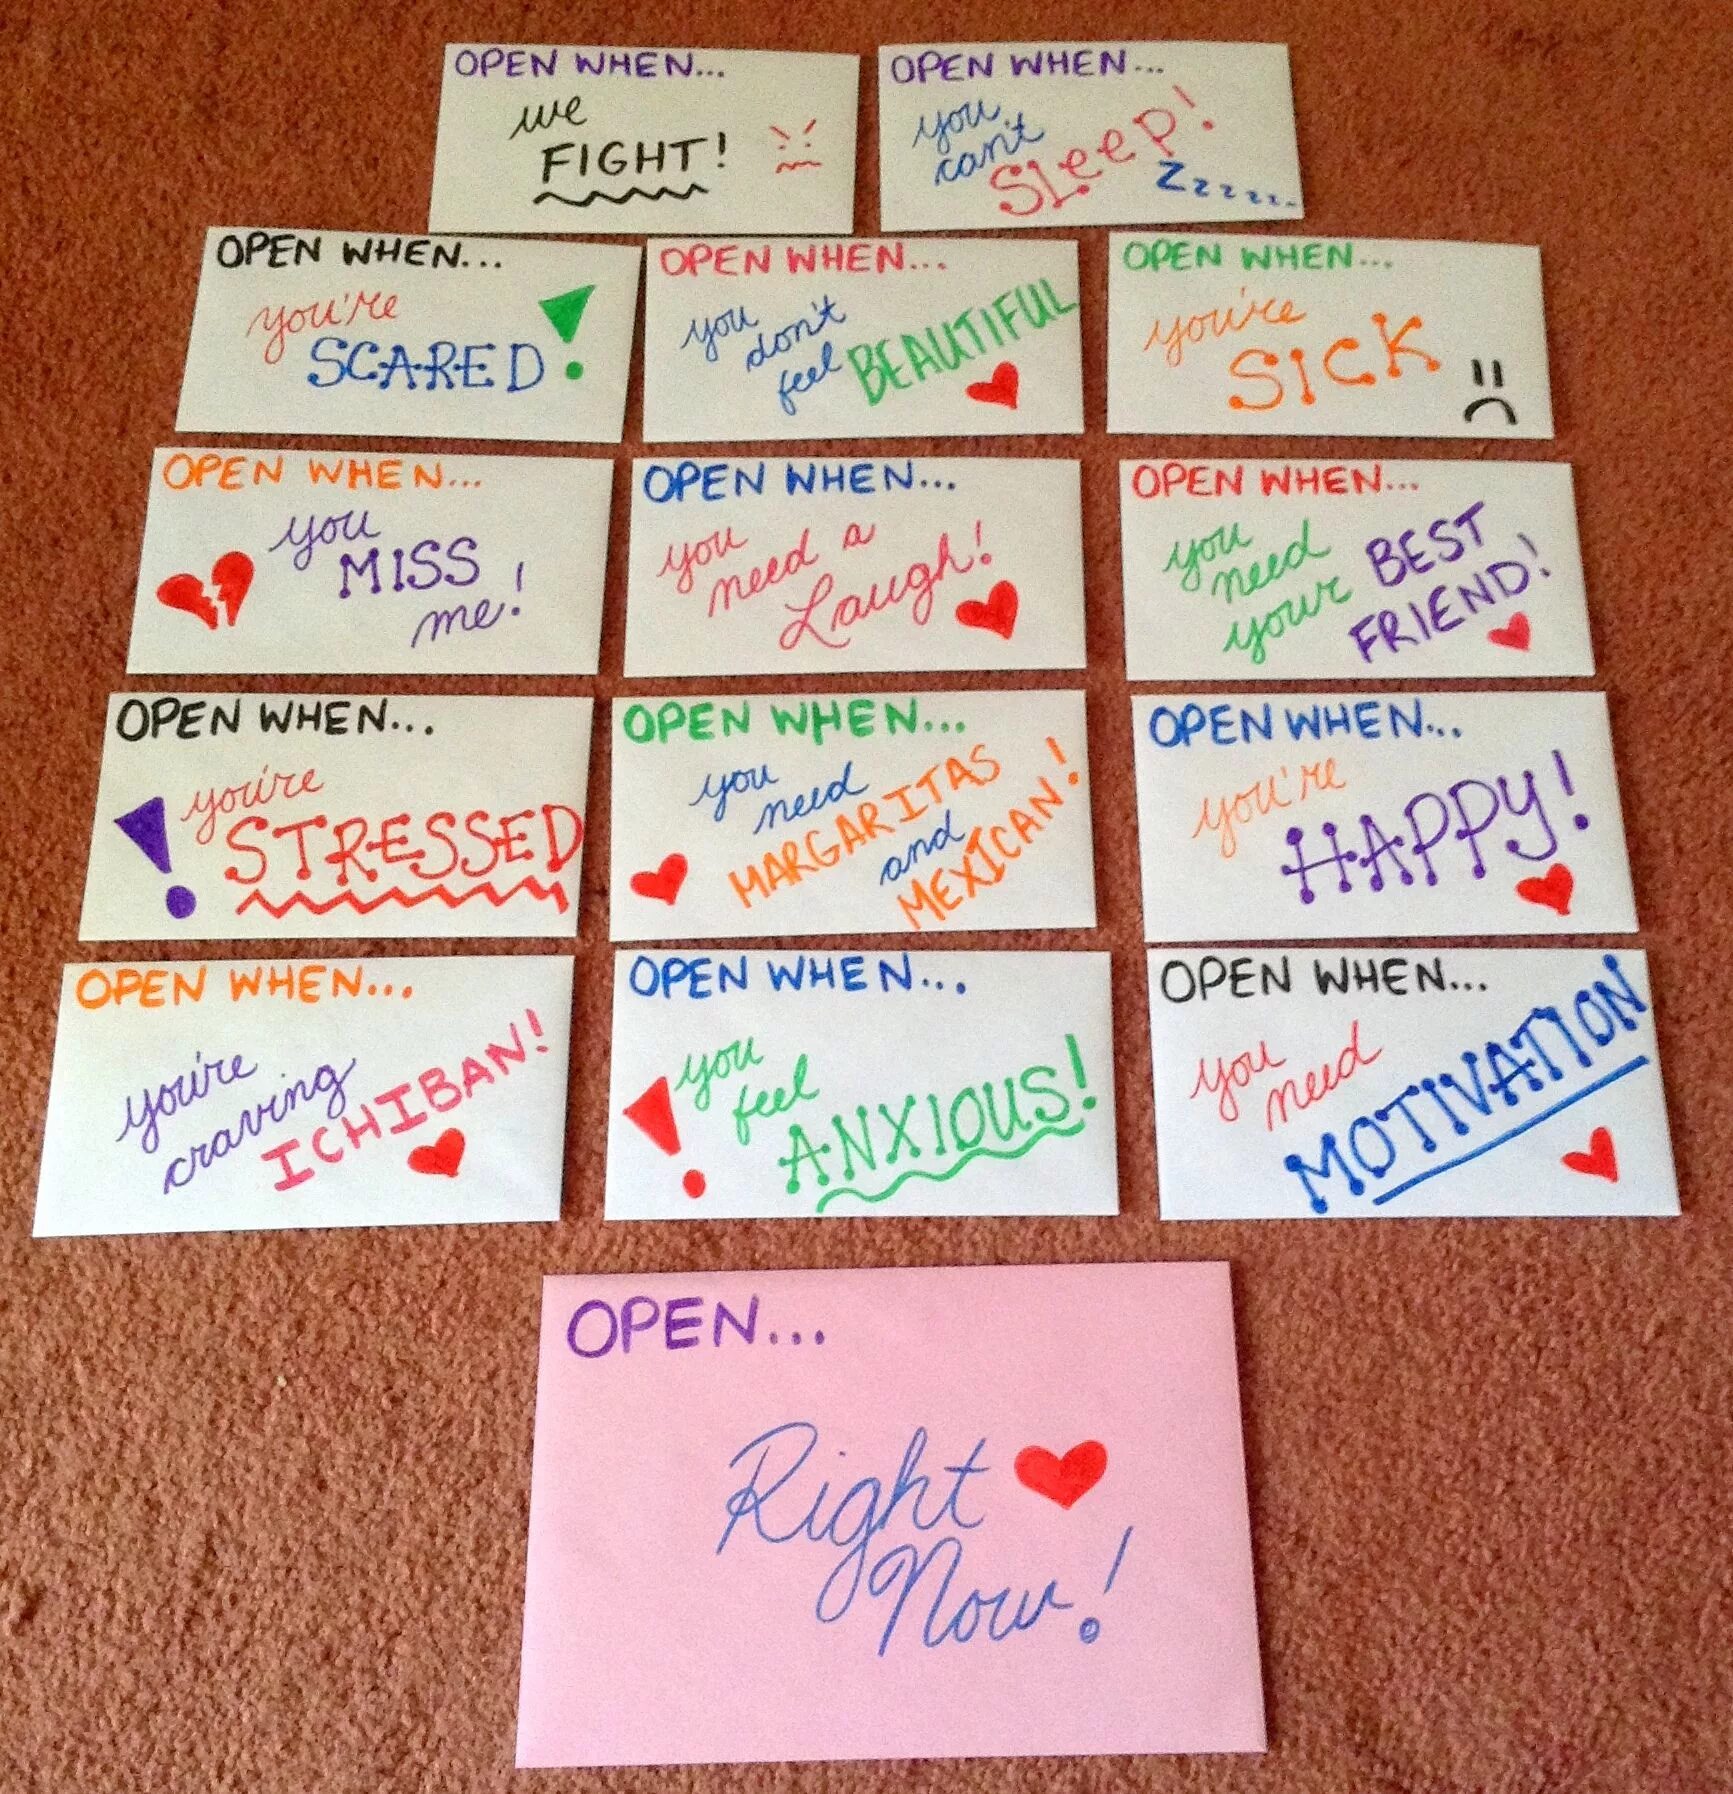 OPEN WHEN...
we
FIGHT!
OPEN WHEN...
you
can't
SLeep!
Zzzzz..
OPEN WHEN...
you're
SCARED!
OPEN WHEN...
you
don't
feel BEAUTIFUL
OPEN WHEN...
you're
SICK
OPEN WHEN...
you
MISS
me!
OPEN WHEN...
you
need a
Laugh!
OPEN WHEN...
you
need
your BEST
FRIEND!
OPEN WHEN...
you're
STRESSED
OPEN WHEN...
you
need
MARGARITAS
and
MEXICAN!
OPEN WHEN...
you're
HAPPY!
OPEN WHEN...
you're
craving
ICHIBAN!
OPEN WHEN...
you
feel
ANXIOUS!
OPEN WHEN...
you
need
MOTIVATION
OPEN...
Right
Now!